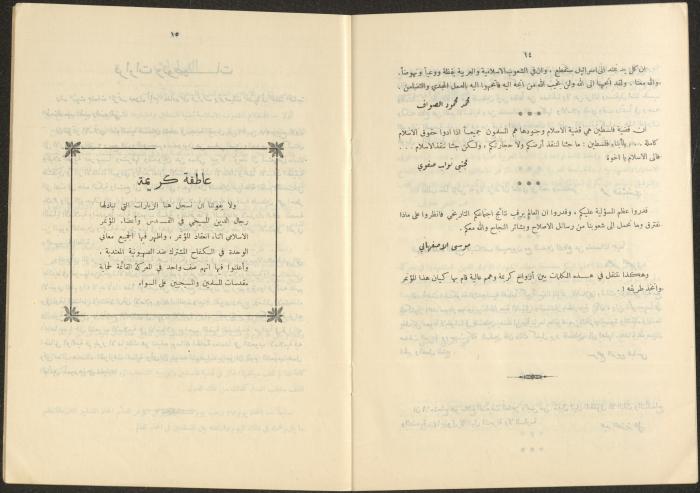 ١٤
ان كل يد تمتد الى اسرائيل ستقطع ، وان في الشعوب الاسلامية والعربية يقظة ووعياً ونهوضاً.
والله معنا . ولقد اتجهنا الى الله ولن يخيب الله من اتجه اليه فاتجهوا اليه بالعمل الجدي والتضامن .
محمد محمود الصواف
ان قضية فلسطين هي قضية الاسلام وجنودها هم المسلمون جميعاً اذا ادوا حقوق الاسلام
كاملة .... يا أبناء فلسطين : ما جئنا لننقذ أرضكم ولا حجارتكم ، ولكن جئنا لننقذ الاسلام ...
فالى الاسلام يا اخوة
مجتبى نواب صفوي
قدروا عظم المسؤلية عليكم ، وقدروا ان العالم يرقب نتائج اجتماعكم التاريخي فانظروا على ماذا
نفترق وما نحمل الى شعوبنا من رسائل الاصلاح وبشائر النجاح والله معكم .
موسى الاصفهاني
وهكذا ننتقل في هذه الكلمات بين أرواح كريمة وهمم عالية قام بها كيان هذا المؤتمر
واتخذ طريقه .
١٥
عاطفة كريمة
ولا يفوتنا ان نسجل هنا الزيارات التي تبادلها
رجال الدين المسيحي في القدس وأعضاء المؤتمر
الاسلامي اثناء انعقاد المؤتمر ، واظهر فيها الجميع معاني
الوحدة في الكفاح المشترك ضد الصهيونية المعتدية .
وأعلنوا فيها انهم صف واحد في المعركة القائمة لحماية
مقدسات المسلمين والمسيحيين على السواء .